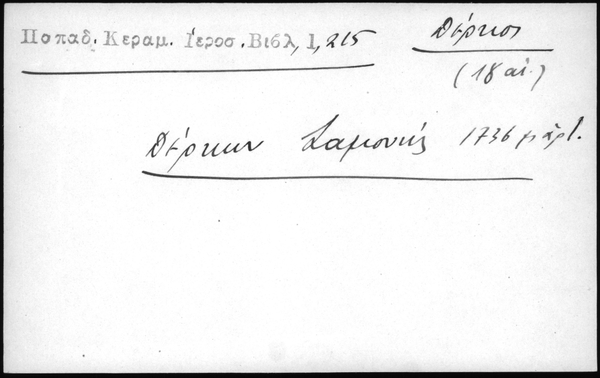 Παπαδ. Κεραμ. Ἱεροσ. Βιβλ, 1, 215
Δέρκοι
(18 αἰ.)
Δέρκων Σαμουήλ 1736 μάρτ.